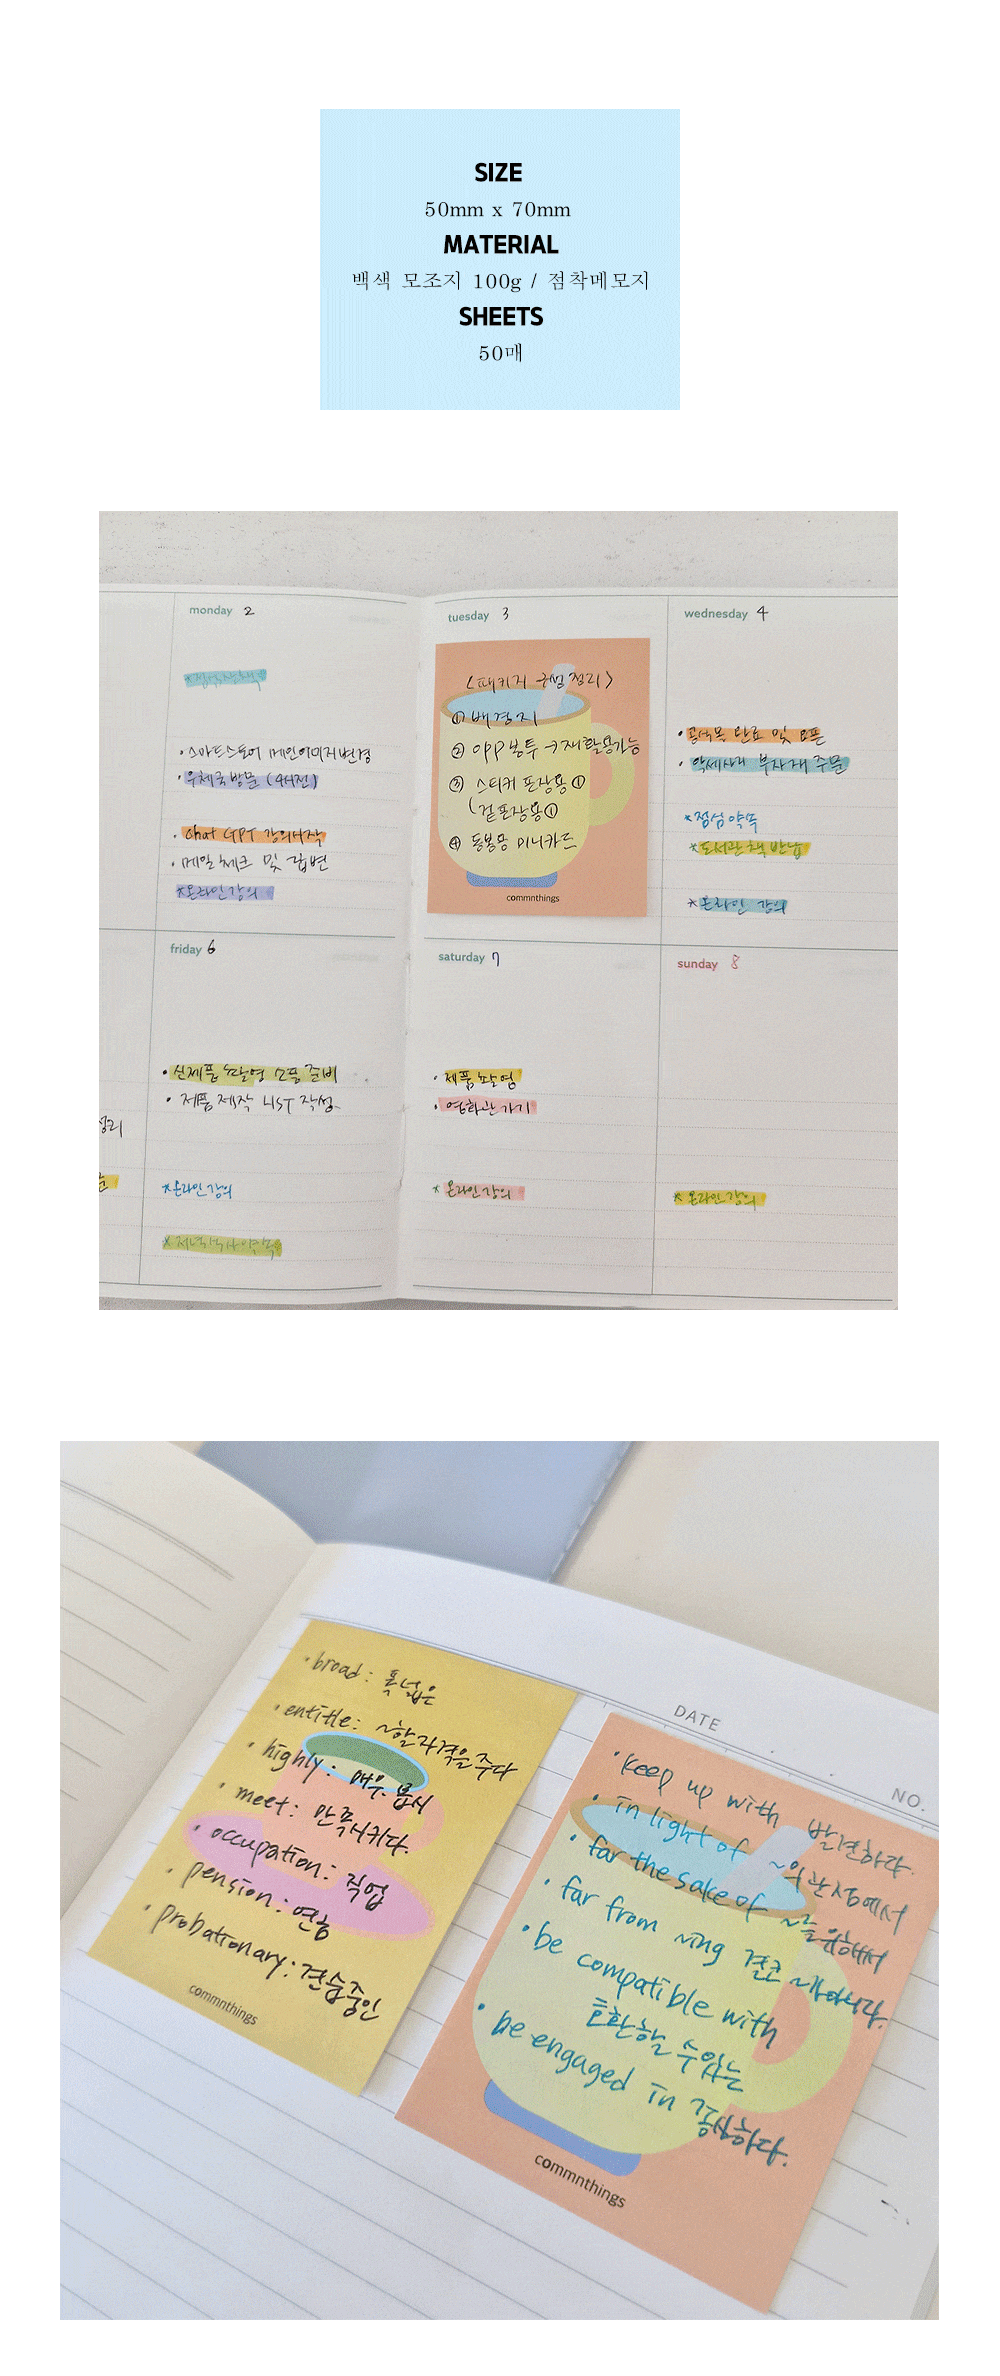 SIZE
50mm x 70mm
MATERIAL
백색 모조지 100g / 점착메모지
SHEETS
50매
monday 2
·스마트스토어 메인이미지변경
·우체국방문 (4시전)
·Chat GPT 강의시작
·메일체크 및 답변
*온라인강의
tuesday 3
<패키지 구성정리>
① 배경지
② OPP봉투 →재활용가능
③ 스티커 포장용①
(겉포장용①
④ 동봉용 미니카드
commnthings
wednesday 4
· 완료 및 오픈
·악세사리 부자재 주문
*점심약속
*도서관 책 반납
*온라인 강의
friday 6
·신제품 촬영 소품 준비
·제품제작 LIST 작성
*온라인강의
*저녁식사약속
saturday 7
·제품촬영
·영화관가기
*온라인강의
sunday 8
*온라인강의
DATE
NO.
·broad: 폭넓은
·entitle: ~할 자격을 주다
·highly: 매우. 몹시
·meet: 만족시키다.
·occupation: 직업
·pension: 연금
·probationary: 견습중인
commnthings
·keep up with 발견하다.
·in light of ~의 관점에서
·far the sake of ~을 위해서
·far from ~ing 결코 ~가 아니다.
·be compatible with
호환할 수 있는
·be engaged in 종사하다.
commnthings